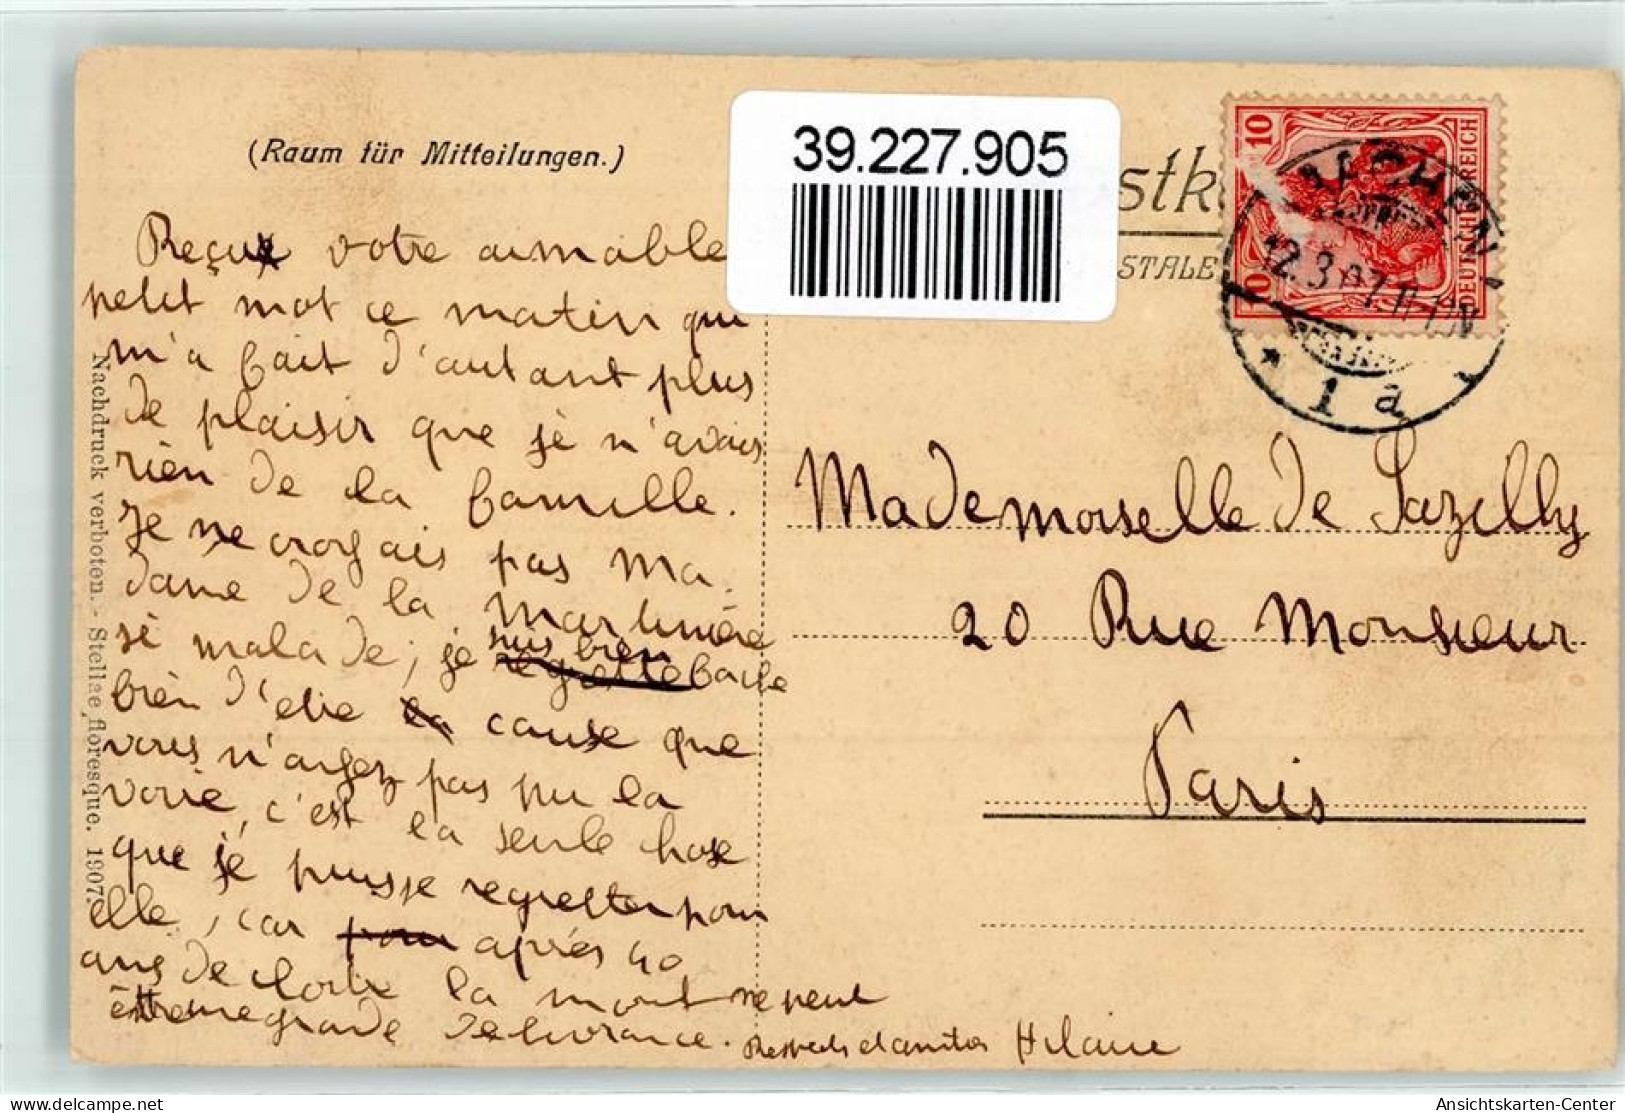 (Raum für Mitteilungen.)
39.227.905
stk
STALE
10 10
DEUTSCHES REICH
AACHEN
12.3.07. 11-12 N
* 1 a
Reçu votre aimable
petit mot ce matin qui
m'a fait d'autant plus
de plaisir que je n'avais
rien de la famille.
Je ne croyais pas Ma
dame de la Martinière
si malade; je suis bien
regrette
bien d'elle la cause que
vous n'ayez pas pu la
voir, c'est la seule chose
que je puisse regretter pour
elle, car pour après 40
ans de la mort ne peut
être une grande délivrance. Respects et amitiés Hilaire
Mademoiselle de Sazilly
20 Rue Monsieur
Paris
Nachdruck verboten. - Stellae floresque. 1907.
delcampe.net
Ansichtskarten-Center